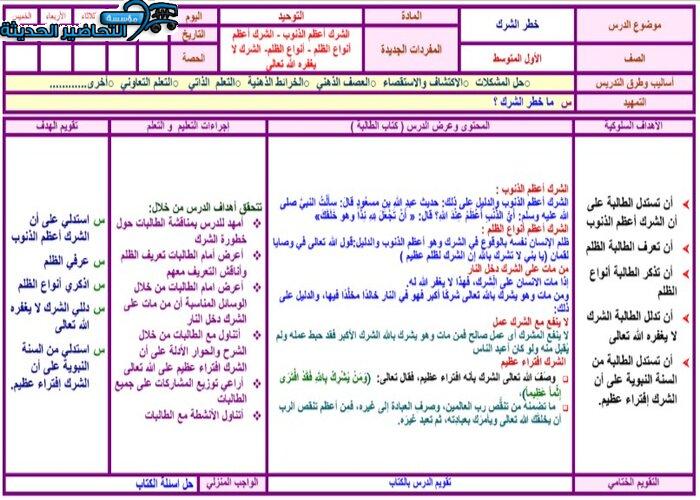 موضوع الدرس
خطر الشرك
المادة
التوحيد
اليوم
ثلاثاء
الأربعاء
الخميس
مؤسسة
التحاضير الحديثة
المفردات الجديدة
الشرك أعظم الذنوب - الشرك أعظم
أنواع الظلم - أنواع الظلم- الشرك لا
يغفره الله تعالى
التاريخ
الصف
الأول المتوسط
الحصة
أساليب وطرق التدريس
○حل المشكلات ○ الاكتشاف والاستقصاء ○العصف الذهني ○الخرائط الذهنية ○التعلم الذاتي ○التعلم التعاوني ○أخرى............
التمهيد
س ما خطر الشرك ؟
الاهداف السلوكية
المحتوى وعرض الدرس ( كتاب الطالبة )
إجراءات التعليم و التعلم
تقويم الهدف
أن تستدل الطالبة على
أن الشرك أعظم الذنوب
أن تعرف الطالبة الظلم
أن تذكر الطالبة أنواع
الظلم
أن تدلل الطالبة الشرك
لا يغفره الله تعالى
أن تستدل الطالبة من
السنة النبوية على أن
الشرك إفتراء عظيم.
الشرك أعظم الذنوب :
الشرك أعظم الذنوب والدليل على ذلك: حديث عبد الله بن مسعود قال: سألت النبيَّ صلى
الله عليه وسلم: أيُّ الذَّنْبِ أَعْظَمُ عندَ الله؟ قال: « أَنْ تَجْعَلَ لِلهِ نِدّاً وهو خَلَقَكَ»
الشرك أعظم أنواع الظلم :
ظلم الإنسان نفسه بالوقوع في الشرك وهو أعظم الذنوب والدليل:قول الله تعالى في وصايا
لقمان (يا بني لا تشرك بالله إن الشرك لظلم عظيم )
من مات على الشرك دخل النار
إذا مات الانسان على الشرك، فهذا لا يغفر الله له.
ومن مات وهو يشرك بالله تعالى شركًا أكبر فهو في النار خالدًا مخلّدًا فيها، والدليل على
ذلك:
لا ينفع مع الشرك عمل
لا ينفع المشرك أي عمل صالح فمن مات وهو يشرك بالله الشرك الأكبر فقد حبط عمله ولم
يقبل منه ولو كان أعبد الناس
الشرك افتراء عظيم
وصف الله تعالى الشرك بأنه افتراء عظيم، فقال تعالى: (وَمَنْ يُشْرِكْ بِاللهِ فَقَدْ افْتَرَى
إِثْماً عَظِيماً)،
ما تضمنه من تنقُّص رب العالمين، وصرف العبادة إلى غيره، فمن أعظم تنقص الرب
أن يخلقك الله تعالى ويأمرك بعبادته، ثم تعبد غيره.
تتحقق أهداف الدرس من خلال:
أمهد للدرس بمناقشة الطالبات حول
خطورة الشرك
أعرض أمام الطالبات تعريف الظلم
وأناقش التعريف معهم
أعرض أمام الطالبات من خلال
الوسائل المناسبة أن من مات على
الشرك دخل النار
أتناول مع الطالبات من خلال
الشرح والحوار الأدلة على أن
الشرك أفتراء عظيم على الله تعالى
أراعي توزيع المشاركات على جميع
الطالبات
أتناول الأنشطة مع الطالبات
س استدلي على أن
الشرك أعظم الذنوب
س عرفي الظلم
س اذكري أنواع الظلم
س دللي الشرك لا يغفره
الله تعالى
س استدلي من السنة
النبوية على أن
الشرك إفتراء عظيم.
التقويم الختامي
تقويم الدرس بالكتاب
الواجب المنزلي
حل اسئلة الكتاب